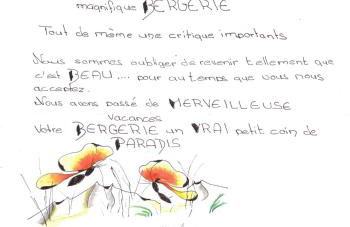 magnifique BERGERIE
Tout de même une critique importants
Nous sommes oubliger de revenir tellement que
c'est BEAU.... pour autemps que vous nous
acceptez.
Nous avons passé de MERVEILLEUSE
vacances
Votre BERGERIE un VRAI petit coin de
PARADIS